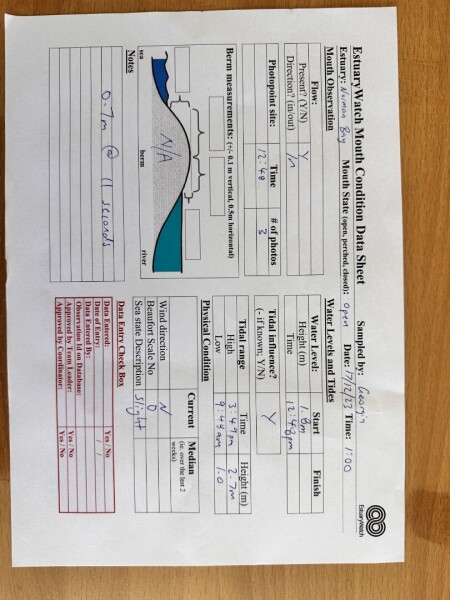 EstuaryWatch Mouth Condition Data Sheet
EstuaryWatch
Estuary: Numan Bay Mouth State (open, perched, closed): Open
Sampled by: Georgia Date: 17/12/23 Time: 1:00
Mouth Observation
Flow:
Present? (Y/N) Y
Direction? (in/out) In
Photopoint site: Time # of photos
12:48 3
Berm measurements: (+/- 0.1 m vertical, 0.5m horizontal)
N/A
sea berm river
Notes
0.7m @ 11 seconds
Water Levels and Tides
Water Level: Start Finish
Height (m) 1.8m
Time 12:48pm
Tidal influence? Y
(- if known; Y/N)
Tidal range Time Height (m)
High 3:49pm 2.7m
Low 9:49am 1.0
Physical Condition
Current Median
(ie. over the last 2 weeks)
Wind direction N
Beaufort Scale No 0
Sea state Description Slight
Data Entry Check Box
Data Entered: Yes / No
Date of Entry: / /
Data Entered By:
Observation Id on Database:
Approved by Team Leader: Yes / No
Approved by Coordinator: Yes / No